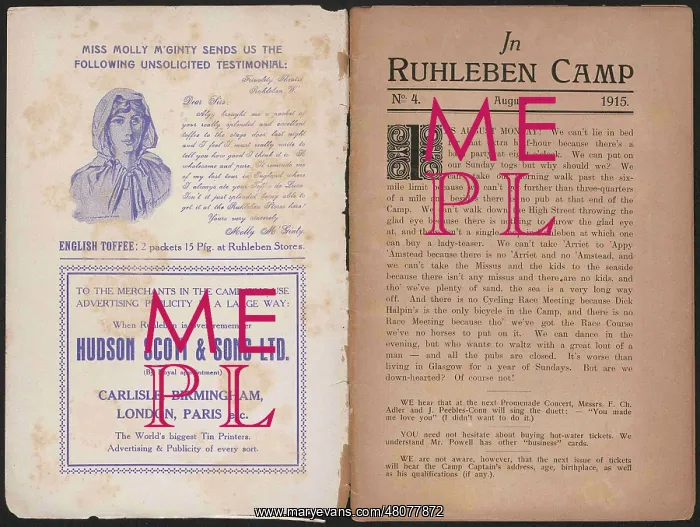 MISS MOLLY M'GINTY SENDS US THE
FOLLOWING UNSOLICITED TESTIMONIAL:
Ruhleben W.
Dear Sirs:
Alyy brought me a packet of
your really splendid and excellent
toffee to the stage door last night
and I feel I must really write to
tell you how good I think it is.
wholesome and pure. It reminds me
of my last tour in England where
I always ate your Toffee de Luxe
Isn't it just splendid being able to
get it at the Ruhleben Stores here!
Yours very sincerely
Molly M'Ginty.
ENGLISH TOFFEE: 2 packets 15 Pfg. at Ruhleben Stores.
TO THE MERCHANTS IN THE CAMP WHO USE
ADVERTISING PUBLICITY IN A LARGE WAY:
When Ruhleben is over remember
HUDSON SCOTT & SONS LTD.
(By Royal appointment)
CARLISLE, BIRMINGHAM,
LONDON, PARIS etc.
The World's biggest Tin Printers.
Advertising & Publicity of every sort.
In
RUHLEBEN CAMP
No. 4. Augu 1915.
IS AUGUST MONDAY! We can't lie in bed
that extra half-hour because there's a
party at eight. We can put on
our Sunday togs but why should we? We
can't take a morning walk past the six-
mile limit because we can't get further than three-quarters
of a mile and besides there is no pub at that end of the
Camp. We can't walk down the High Street throwing the
glad eye because there is nothing to throw the glad eye
at, and there isn't a single in Ruhleben at which one
can buy a lady-teaser. We can't take 'Arriet to 'Appy
'Amstead because there is no 'Arriet and no 'Amstead, and
we can't take the Missus and the kids to the seaside
because there isn't any missus and there are no kids, and
tho' we've plenty of sand, the sea is a very long way
off. And there is no Cycling Race Meeting because Dick
Halpin's is the only bicycle in the Camp, and there is no
Race Meeting because tho' we've got the Race Course
we've no horses to put on it. We can dance in the
evening, but who wants to waltz with a great loot of a
man — and all the pubs are closed. It's worse than
living in Glasgow for a year of Sundays. But are we
down-hearted? Of course not!
WE hear that at the next Promenade Concert, Messrs. F. Ch.
Adler and J. Peebles-Conn will sing the duett: — "You made
me love you" (I didn't want to do it.)
YOU need not hesitate about buying hot-water tickets. We
understand Mr. Powell has other "business" cards.
WE are not aware, however, that the next issue of tickets
will bear the Camp Captain's address, age, birthplace, as well
as his qualifications (if any).
ME
PL
ME
PL
www.maryevans.com/48077872